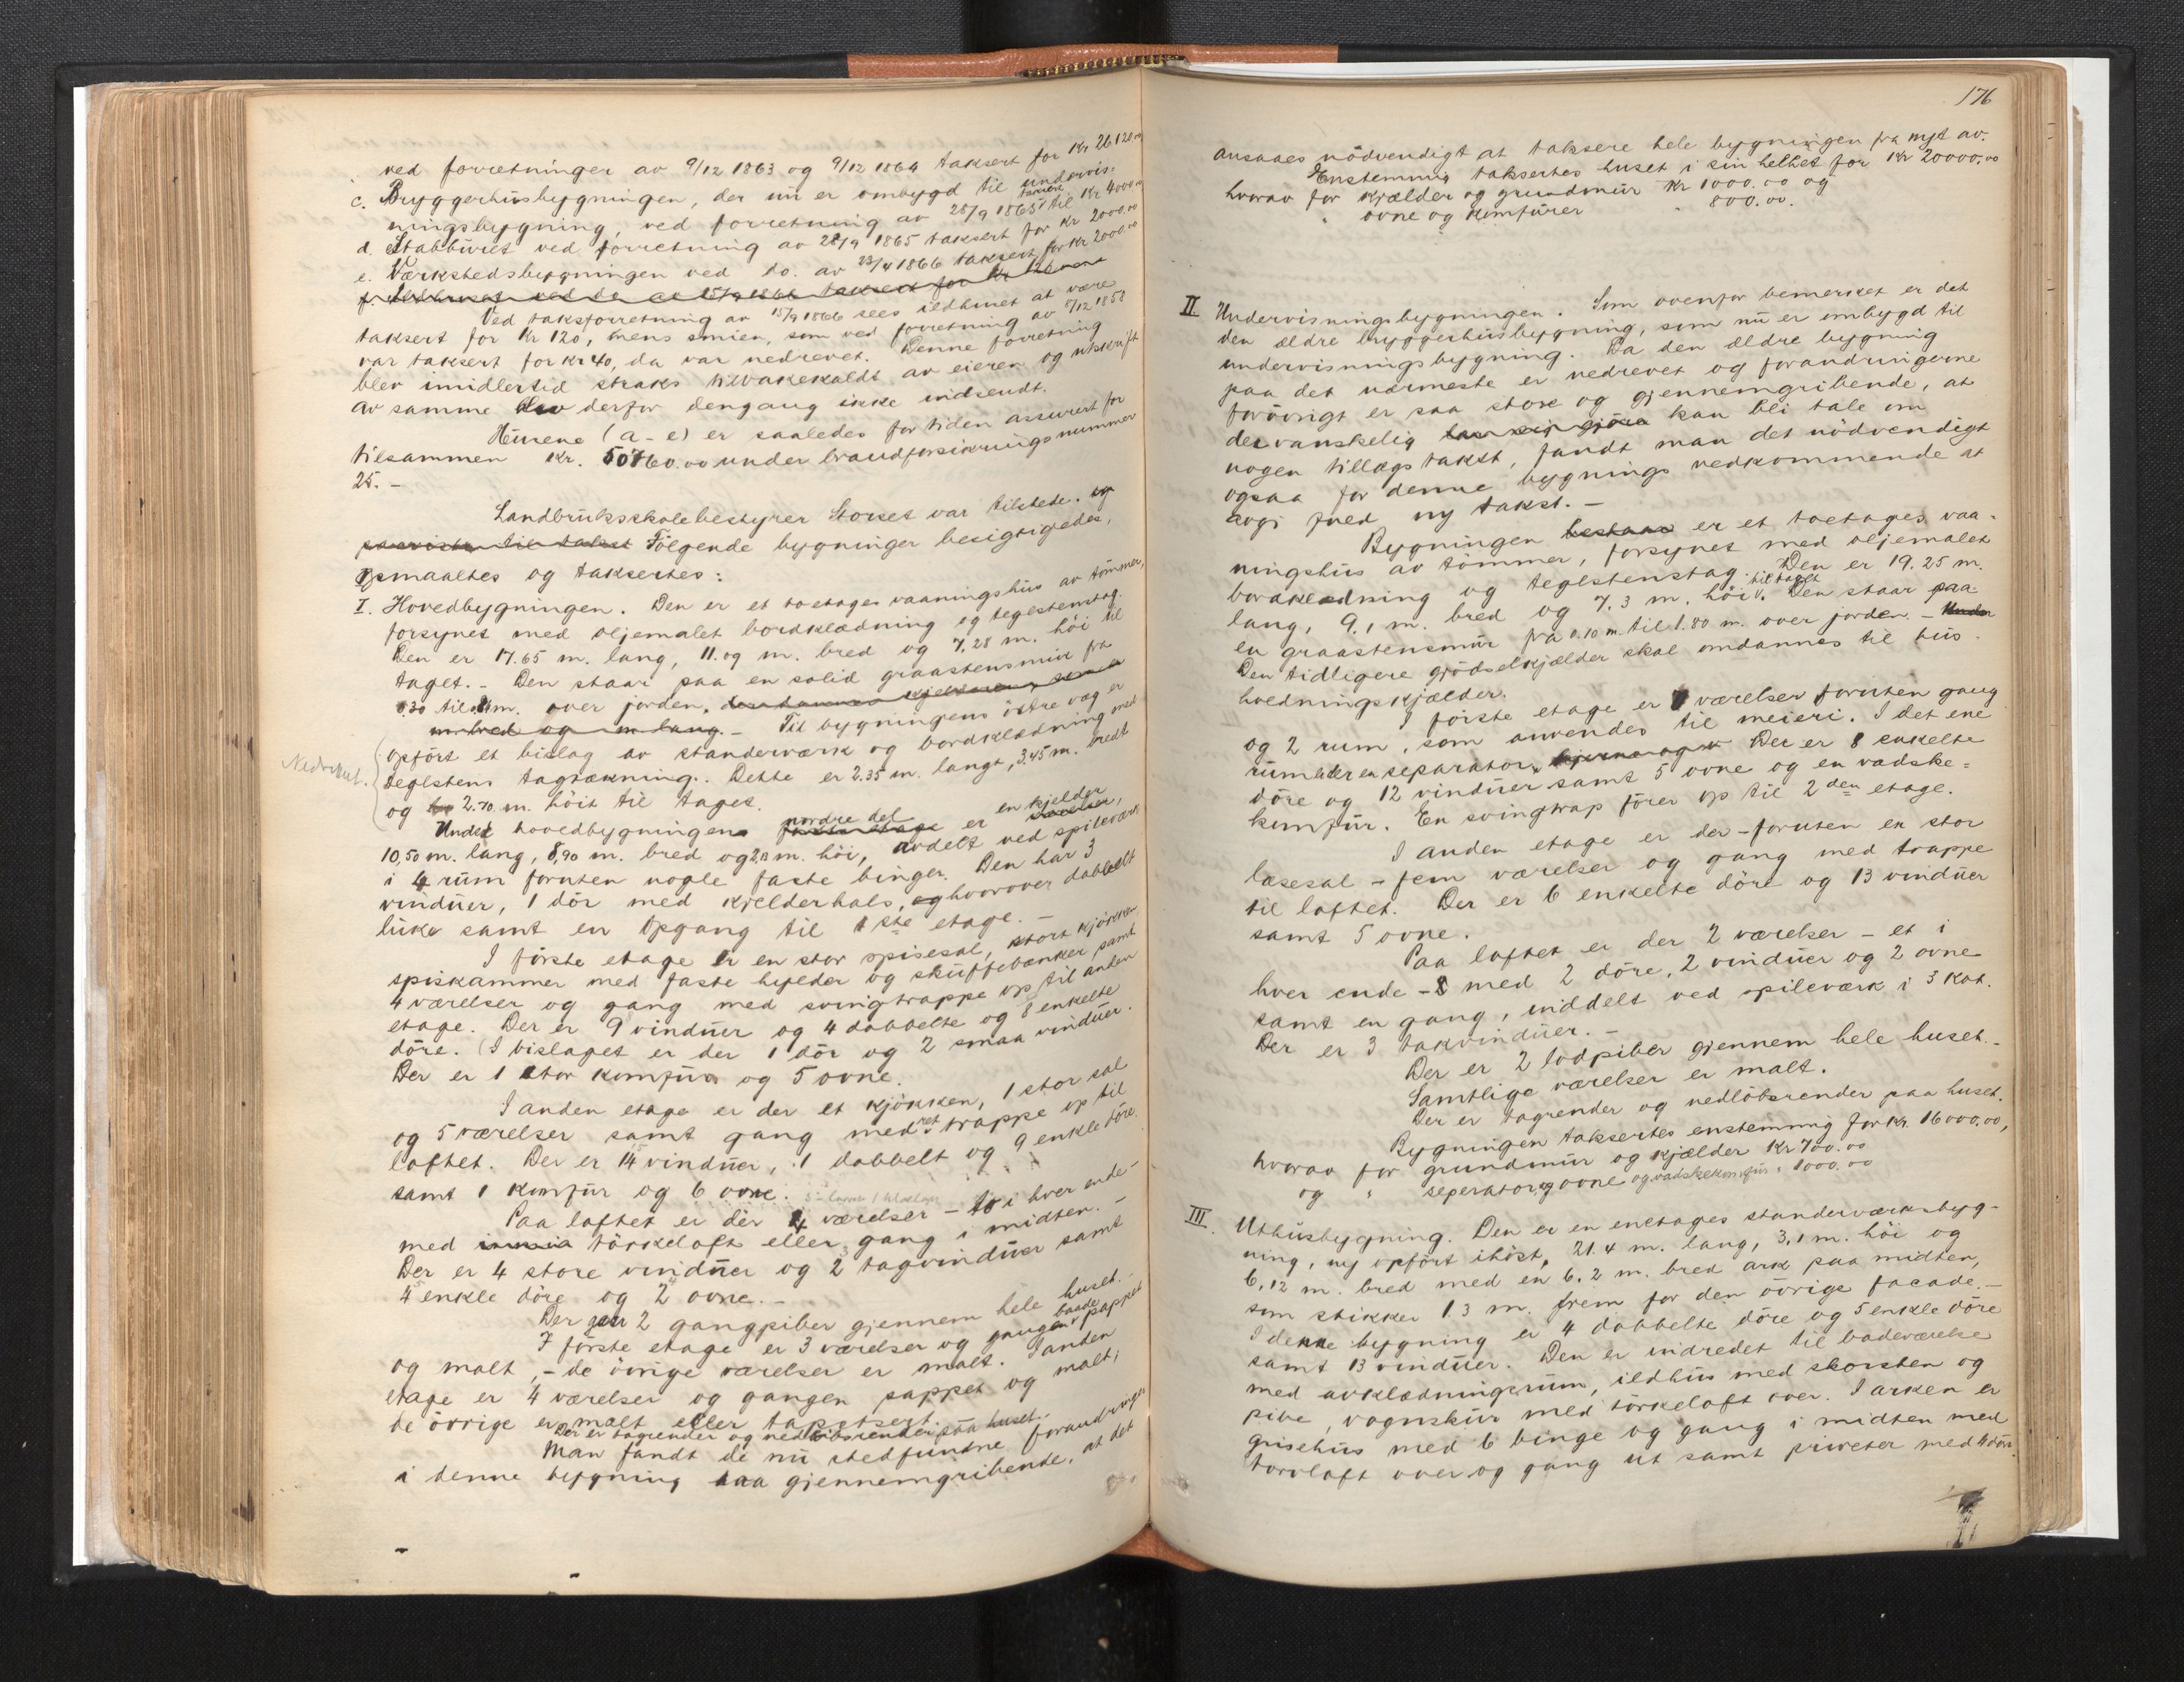 ved forretninger av 9/12 1863 og 9/12 1864 taksert for Kr 26120.00
c. Bryggerhusbygningen, der nu er ombygd til undervis-
ningsbygning, ved forretning av 28/9 1865 taksert til Kr 4000.00
d. Stabburet ved forretning av 28/9 1865 taksert for Kr 2000.00
e. Værkstedsbygningen ved do. av 23/4 1866 taksert for Kr 2000.00
f. Ildhuset ved do av 15/9 1866 taksert for Kr
Ved taksforretning av 15/9 1866 sees ildhuset at være
taksert for Kr 120, mens smien, som ved forretning av 8/12 1858
var taksert for Kr 40, da var nedrevet. Denne forretning
blev imidlertid straks tilbakekaldt av eieren og utskrift
av samme blev derfor dengang ikke indsendt.
Husene (a-e) er saaledes for tiden assurert for
tilsammen Kr. 50760.00 under brandforsikringsnummer
25. -
Landbruksskolebestyrer Storset var tilstede. og
paaviste til takst Følgende bygninger besigtigedes,
opmaaltes og taksertes:
I. Hovedbygningen. Den er et toetages vaaningshus av tømmer,
forsynet med oljemalet bordklædning og teglstenstag.
Den er 17.65 m. lang, 11.09 m. bred og 7,28 m. høi til
taget. - Den staar paa en solid graastensmur fra
0.30 til m. over jorden.
m. bred og m. lang. - Til bygningens østre væg er
opført et bislag av standerværk og bordklædning med
teglstens tagtækning. Dette er 2.35 m. langt, 3.45 m. bredt
Nedrevet.
og 2.70 m. høit til taget.
Under hovedbygningens nordre del første etage er en kjelder
10,50 m. lang, 8,90 m. bred og 2,13 m. høi, avdelt ved spileverk
i 4 rum foruten nogle faste binger. Den har 3
vinduer, 1 dør med kjelderhals, og hvorover dobbelt
luke samt en opgang til 1ste etage. -
I første etage er en stor spisesal, stort kjøkken,
spiskammer med faste hylder og skuffebænker samt
4 værelser og gang med svingtrappe op til anden
etage. Der er 9 vinduer og 4 dobbelte og 8 enkelte
døre. (I bislaget er der 1 dør og 2 smaa vinduer.
Der er 1 stor komfur og 5 ovne.
I anden etage er der et kjøkken, 1 stor sal
og 5 værelser samt gang med ret trappe op til
loftet. Der er 14 vinduer, 1 dobbelt og 9 enkle døre
samt 1 komfur og 6 ovne.
Paa loftet er der 4 værelser - to i hver ende -
med tørkeloft eller gang i midten. -
Der er 4 store vinduer og 2 tagvinduer samt
4 enkle døre og 2 ovne. -
Der gaar 2 gangpiber gjennem hele huset. -
I første etage er 3 værelser og gangen baade pappet
og malt, - de øvrige værelser er malt. I anden
etage er 4 værelser og gangen pappet og malt;
de øvrige er malt eller tapetsert.
Der er tagrender og nedløbsrender paa huset.
Man fandt de nu stedfundne forandringer
i denne bygning saa gjennemgribende, at det
176
ansaaes nødvendigt at taksere hele bygningen fra nyt av.
Enstemmig taksertes huset i sin helhet for Kr 20000.00
hvorav for kjælder og grundmur Kr 1000.00 og
" ovne og komfurer " 800.00.
II Undervisningsbygningen. Som ovenfor bemerket er det
den ældre bryggerhusbygning, som nu er ombygd til
undervisningsbygning. Da den ældre bygning
paa det nærmeste er nedrevet og forandringerne
forøvrigt er saa store og gjennemgribende, at
der vanskelig lar sig gjøre kan bli tale om
nogen tillægstakst, fandt man det nødvendigt
ogsaa for denne bygnings vedkommende at
avgi ny takst. -
Bygningen bestaar er et toetages vaa-
ningshus av tømmer, forsynet med oljemalet
bordklædning og teglstenstag. Den er 19.25 m.
lang, 9.1 m. bred og 7.3 m. høi til taget. Den staar paa
en graastensmur fra 0.10 m. til 1.80 m. over jorden. - Under
Den tidligere gjødselkjælder skal omdannes til hus-
holdningskjælder.
I første etage er 7 værelser foruten gang
og 2 rum, som anvendes til meieri. I det ene
rum er en separator, Der er 8 enkelte
døre og 12 vinduer samt 5 ovne og en vadske-
komfur. En svingtrap fører op til 2den etage.
I anden etage er der - foruten en stor
læsesal - fem værelser og gang med trappe
til loftet. Der er 6 enkelte døre og 13 vinduer
samt 5 ovne.
Paa loftet er der 2 værelser - et i
hver ende - med 2 døre, 2 vinduer og 2 ovne
samt en gang, inddelt ved spileværk i 3 kot.
Der er 3 takvinduer. -
Der er 2 lodpiber gjennem hele huset. -
Samtlige værelser er malt.
Der er tagrender og nedløbsrender paa huset.
Bygningen taksertes enstemmig for Kr. 16000.00,
hvorav for grundmur og kjælder Kr 700.00
og " seperator, og ovne og vadskekomfur " 1000.00
III. Uthusbygning. Den er en enetages standerværksbyg-
ning, ny opført ihøst, 21.4 m. lang, 3,1 m. høi og
6,12 m. bred med en 6.2 m. bred ark paa midten,
som stikker 1.3 m. frem for den øvrige facade. -
I denne bygning er 4 dobbelte døre og 5 enkle døre
samt 13 vinduer. Den er indredet til badeværelse
med avklædningsrum, ildhus med skorsten og
pibe, vognskur med tørkeloft over. I arken er
grisehus med 6 binge og gang i midten med
torvloft over og gang ut samt priveter med 4 døre